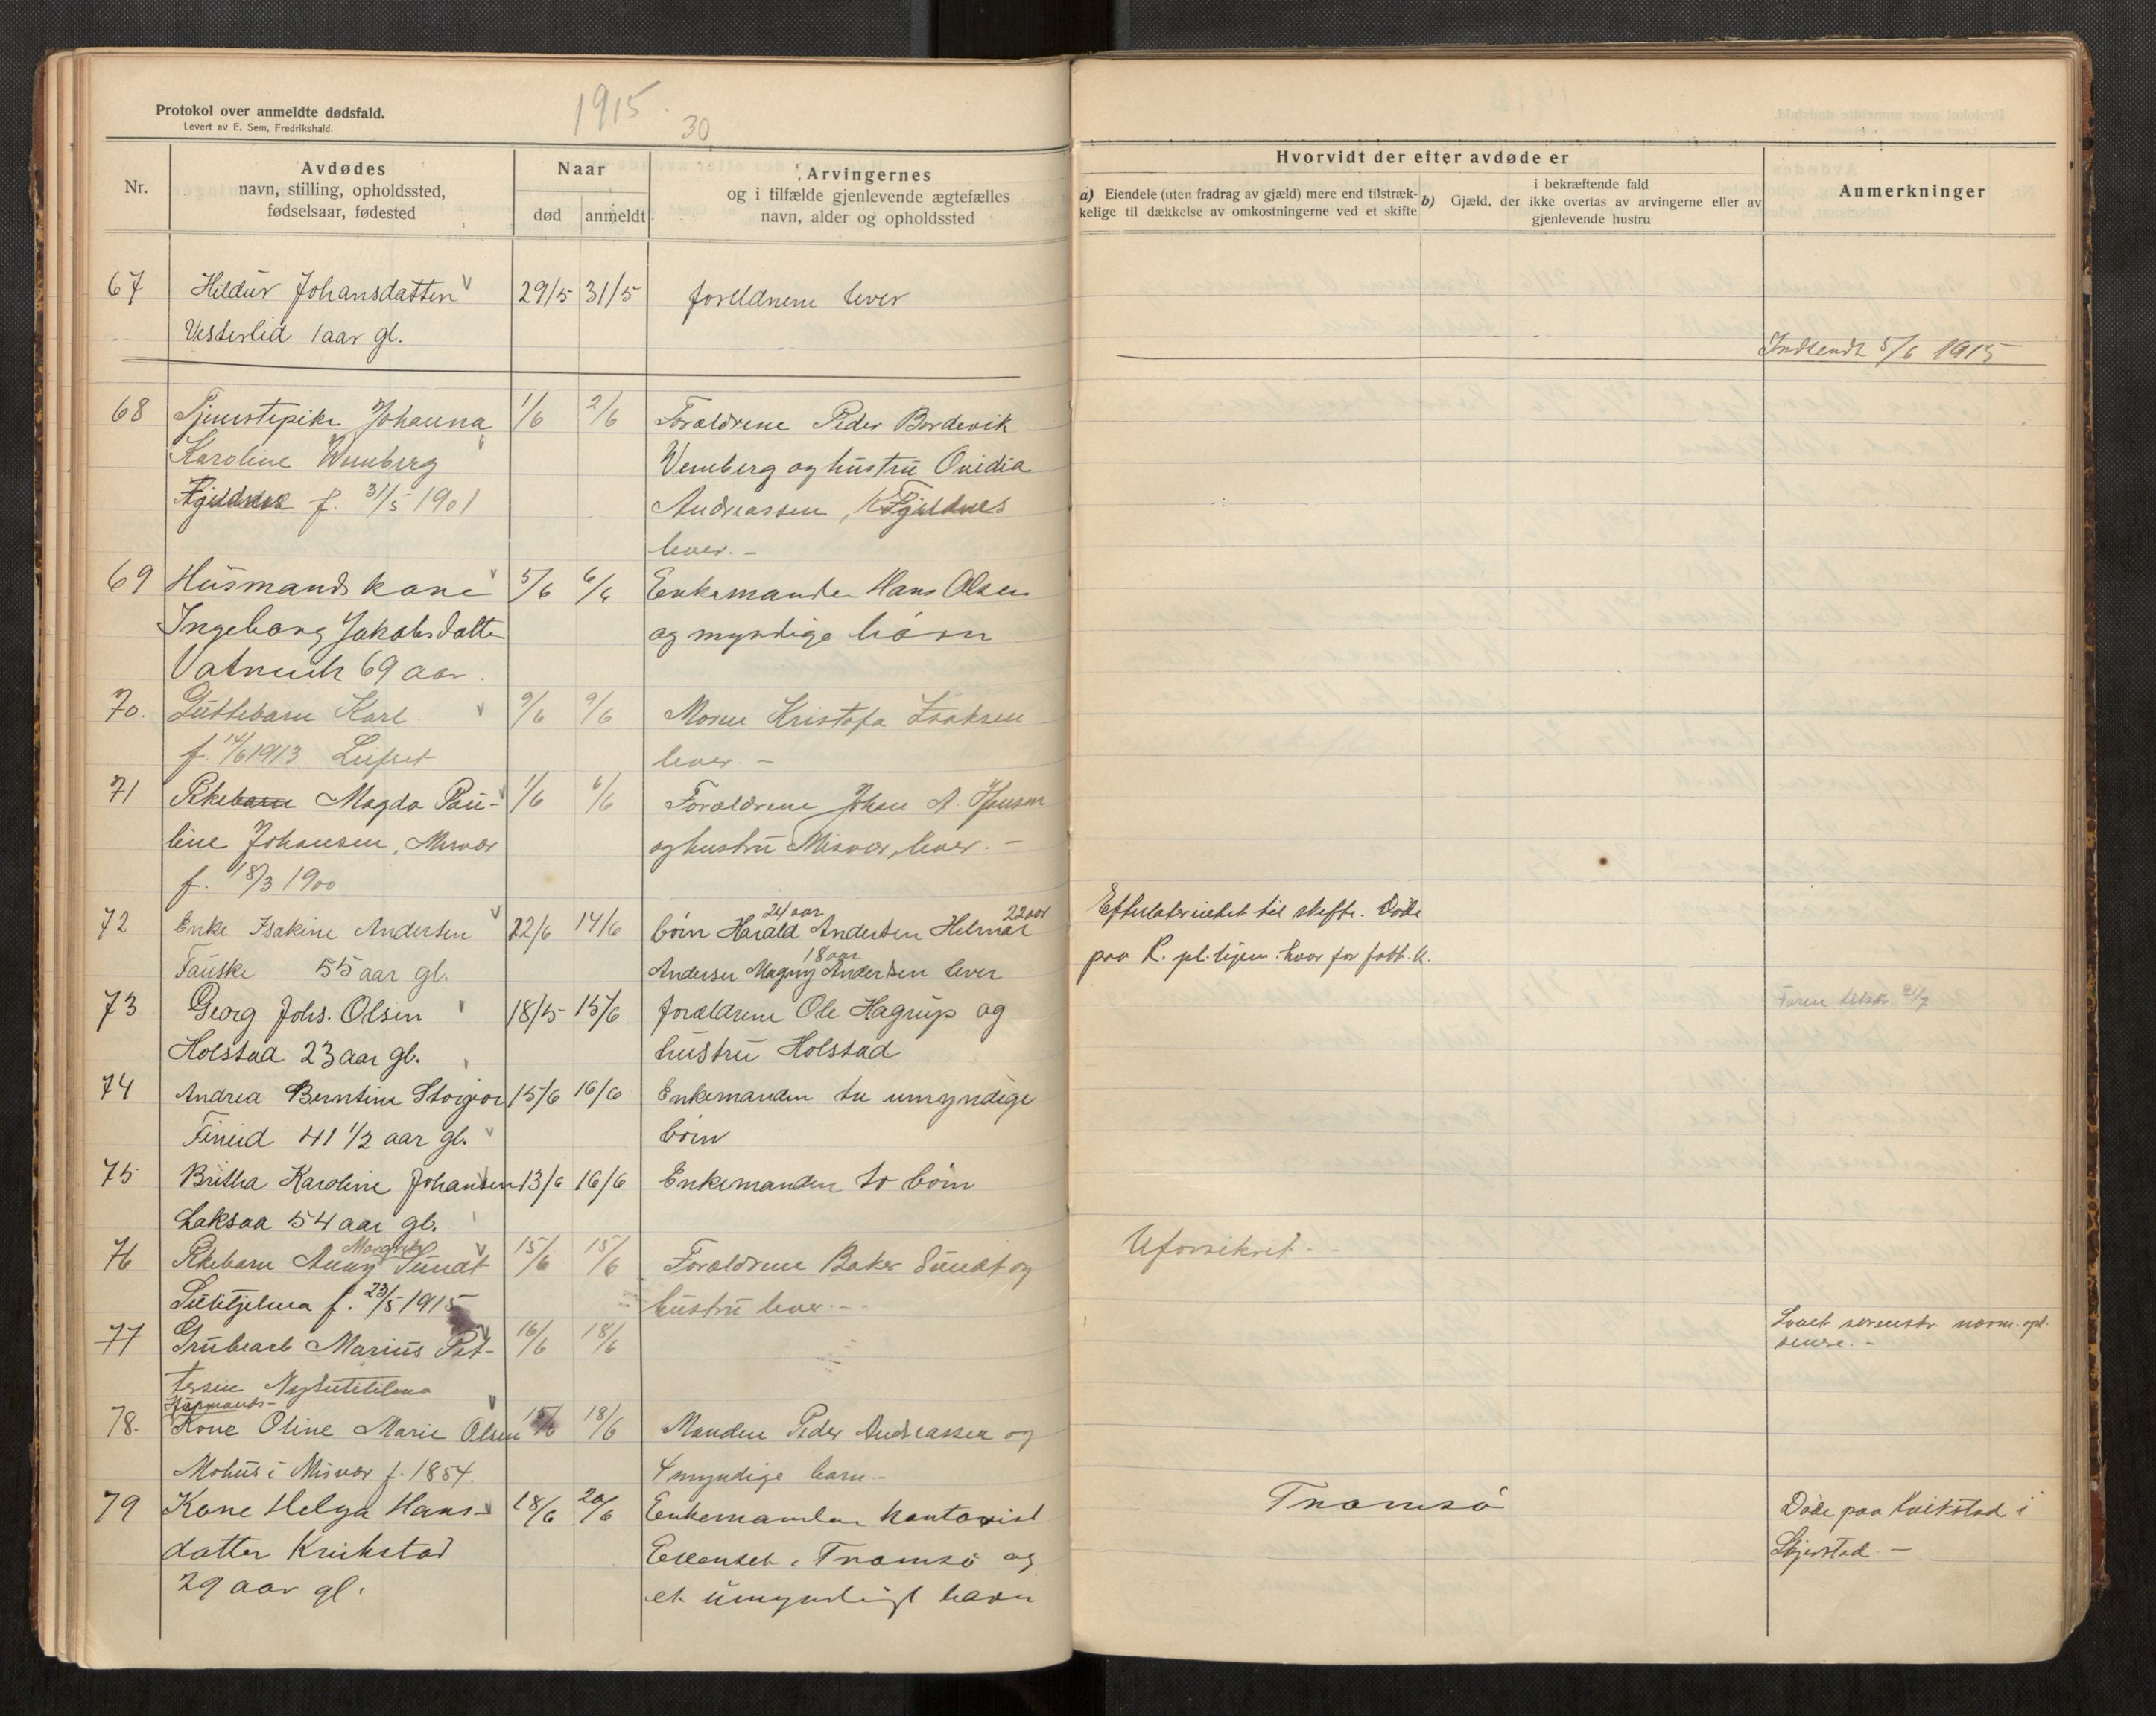 Protokol over anmeldte dødsfald.
Levert av E. Sem, Fredrikshald.
1915
30
Nr.
Avdødes
navn, stilling, opholdssted,
fødselsaar, fødested
Naar
død
anmeldt
Arvingernes
og i tilfælde gjenlevende ægtefælles
navn, alder og opholdssted
Hvorvidt der efter avdøde er
a) Eiendele (uten fradrag av gjæld) mere end tilstræk-
kelige til dækkelse av omkostningerne ved et skifte
b) Gjæld, der ikke overtas av arvingerne eller av
i bekræftende fald
gjenlevende hustru
Anmerkninger
67 Hildur Johansdatter 29/5 31/5 foreldrene lever
Vesterlid 1 aar gl.
Indsendt 5/6 1915
68 Tjenestepike Johanna 1/6 2/6 Forældrene Peder Bordevik
Karoline Wemberg Vemberg og hustru Ovidia
f. 31/5 1901 Andreassen, Fjeldnes
lever. -
69 Husmandskone 5/6 6/6 Enkemanden Hans Olsen
Ingeborg Jakobsdatter og myndige børn
69 aar.
70. Guttebarn Karl 9/6 9/6 Moren Kristofa Isaksen
f. 14/6 1913 lever. -
71 Pikebarn Magda Pau- 1/6 6/6 Forældrene Johan A. Hansen
line Johansen, Misvær og hustru Misvær, lever. -
f. 18/3 1900
72 Enke Isakine Andersen 12/6 14/6 børn Harald 24 aar Andersen Helmar 22 aar
Fauske 55 aar gl. Andersen Magny 18 aar Andersen lever
Efterlater intet til skifte. Døde
paa R. pl. hjem hvor for
73 Georg Johs. Olsen 18/5 15/6 forældrene Ole Hagrup og
Faren 21/7
Holstad 23 aar gl. hustru Holstad
74 Andrea Berntine Storjor 15/6 16/6 Enkemanden tre umyndige
Fineid 41 1/2 aar gl. børn
75 Britha Karoline Johansen 13/6 16/6 Enkemanden to børn
Laksaa 54 aar gl.
76 Pikebarn Anny Margrethe Sundt 15/6 15/6 Forældrene Baker Sundt og
Uforsikret. -
Sulitjelma f. 23/5 1915 hustru lever. -
77 Grubearb Marius Pet- 16/6 18/6
Lovet
tersen
78. Husmands-
Kone Oline Marie Olsen 15/6 18/6 Manden Peder Andreassen og
Mohus i Misvær f. 1854. 4 myndige barn. -
79 Kone Helga Hans- 18/6 20/6 Enkemanden kontorist
Tromsø
Døde paa Kvikstad i
datter Kvikstad i Tromsø og
Skjerstad. -
29 aar gl. et umyndigt barn